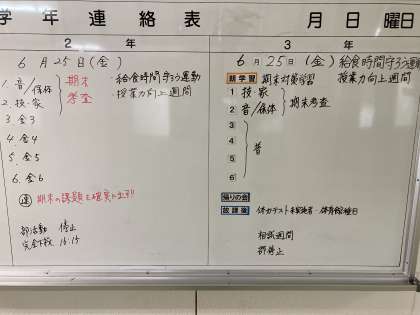 学年連絡表 月 日 曜日
2 年
6月25日(金)
・給食時間守ろう運動
・授業力向上週間
1. 音/保体
2. 技・家
期末
考査
3 金3
4. 金4
5. 金5
6. 金6
連 期末の課題を確実に出す!!
部活動 停止
完全下校 16:15
3 年
6月25日(金) 給食時間守ろう運動
授業力向上週間
朝学習 期末対策学習
1 技・家
2 音/保体
期末考査
3
4
5
6
普
帰りの会
放課後
相談週間
部停止